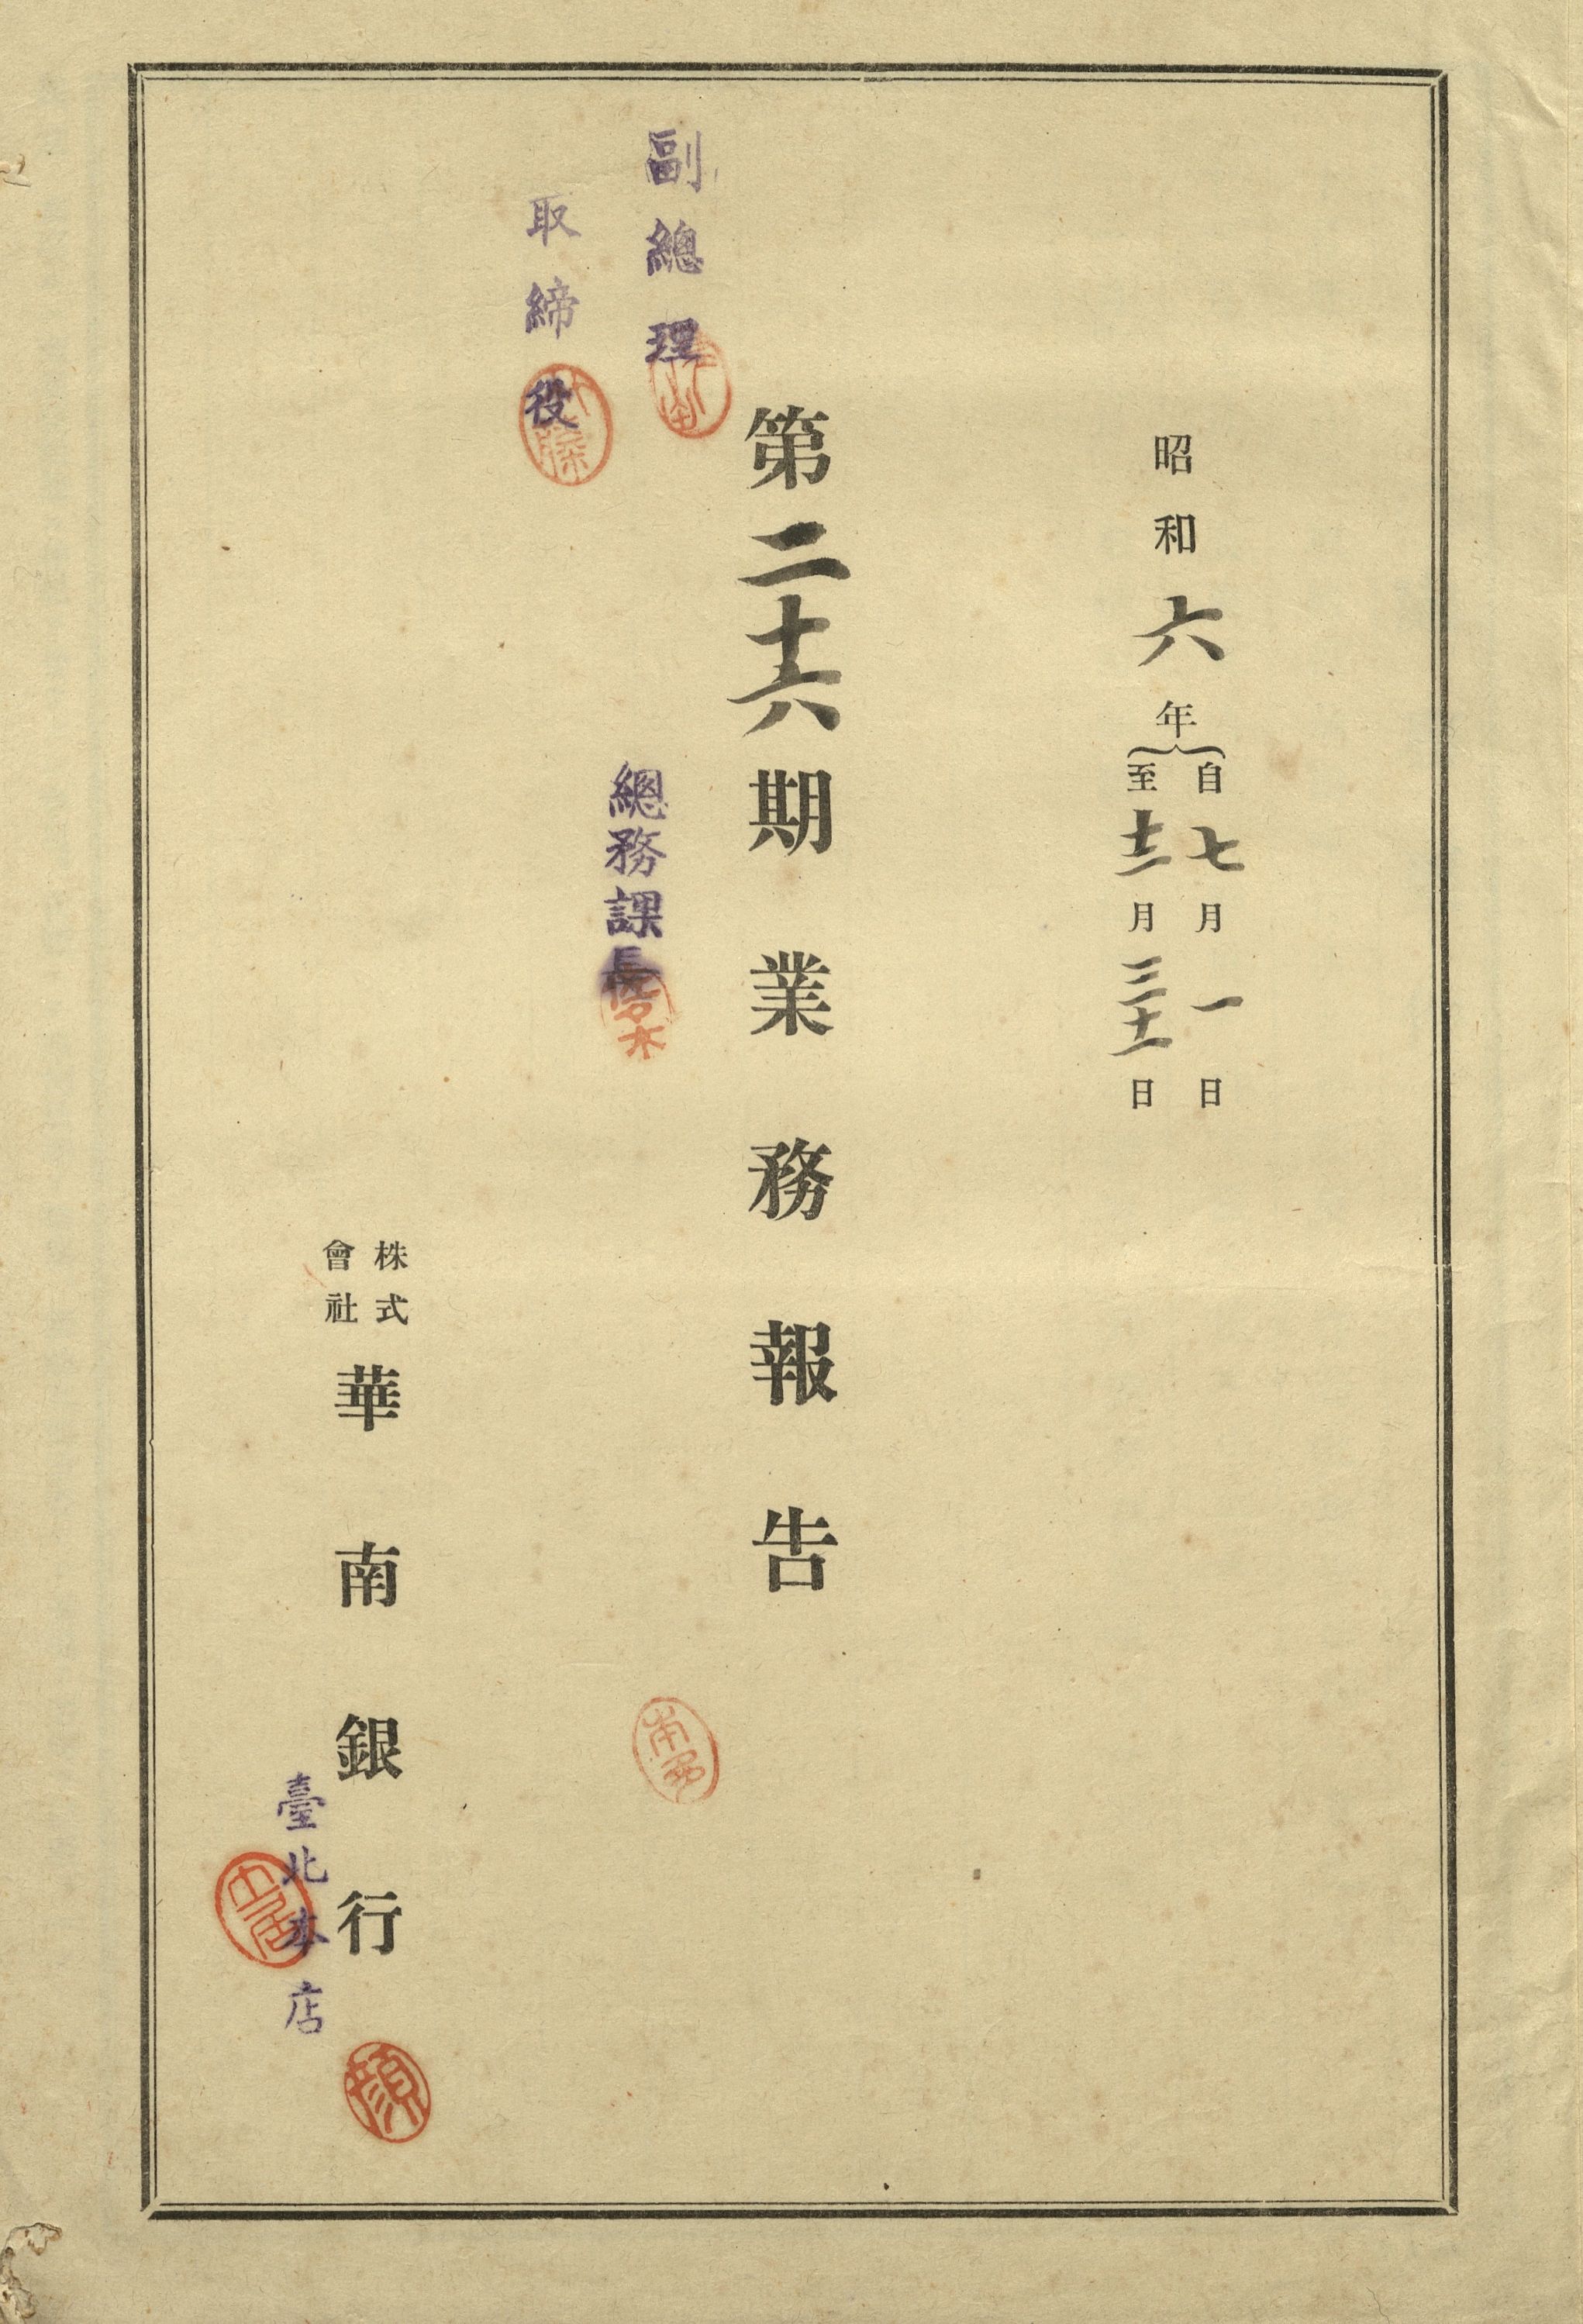 昭和六年
自七月一日
至十二月三十一日
第二十六期業務報告
副總理
取締役
總務課長
佐々木
株式
會社
華南銀行
臺北本店
顏